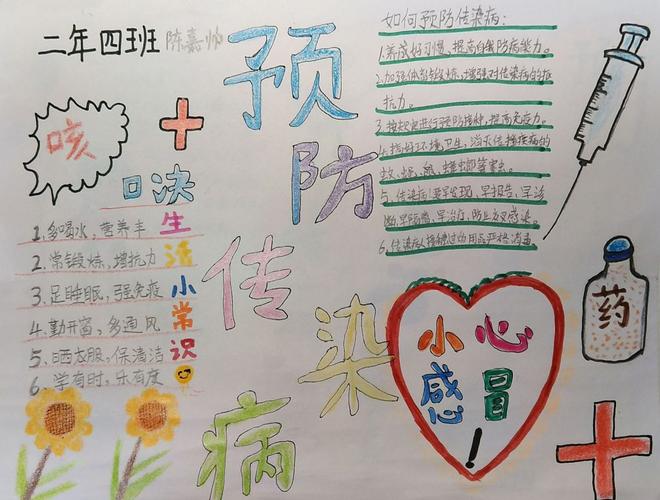 二年四班 陈嘉帅
预防传染病
咳
口决
生活小常识
1.多喝水,营养丰
2.常锻炼,增抗力
3.足睡眠,强免疫
4.勤开窗,多通风
5.晒衣服,保清洁
6.学有时,乐有度
如何预防传染病:
1.养成好习惯,提高自我防病能力。
2.加强体育锻炼,增强对传染病的抵
抗力。
3.按规定进行预防接种,提高免疫力。
4.搞好环境卫生,消灭传播疾病的
蚊、蝇、鼠、蟑螂等害虫。
5.传染病人要早发现,早报告,早诊
断,早隔离,早治疗,防止交叉感染。
6.传染病人接触过的用品严格消毒
药
小心
感冒
!